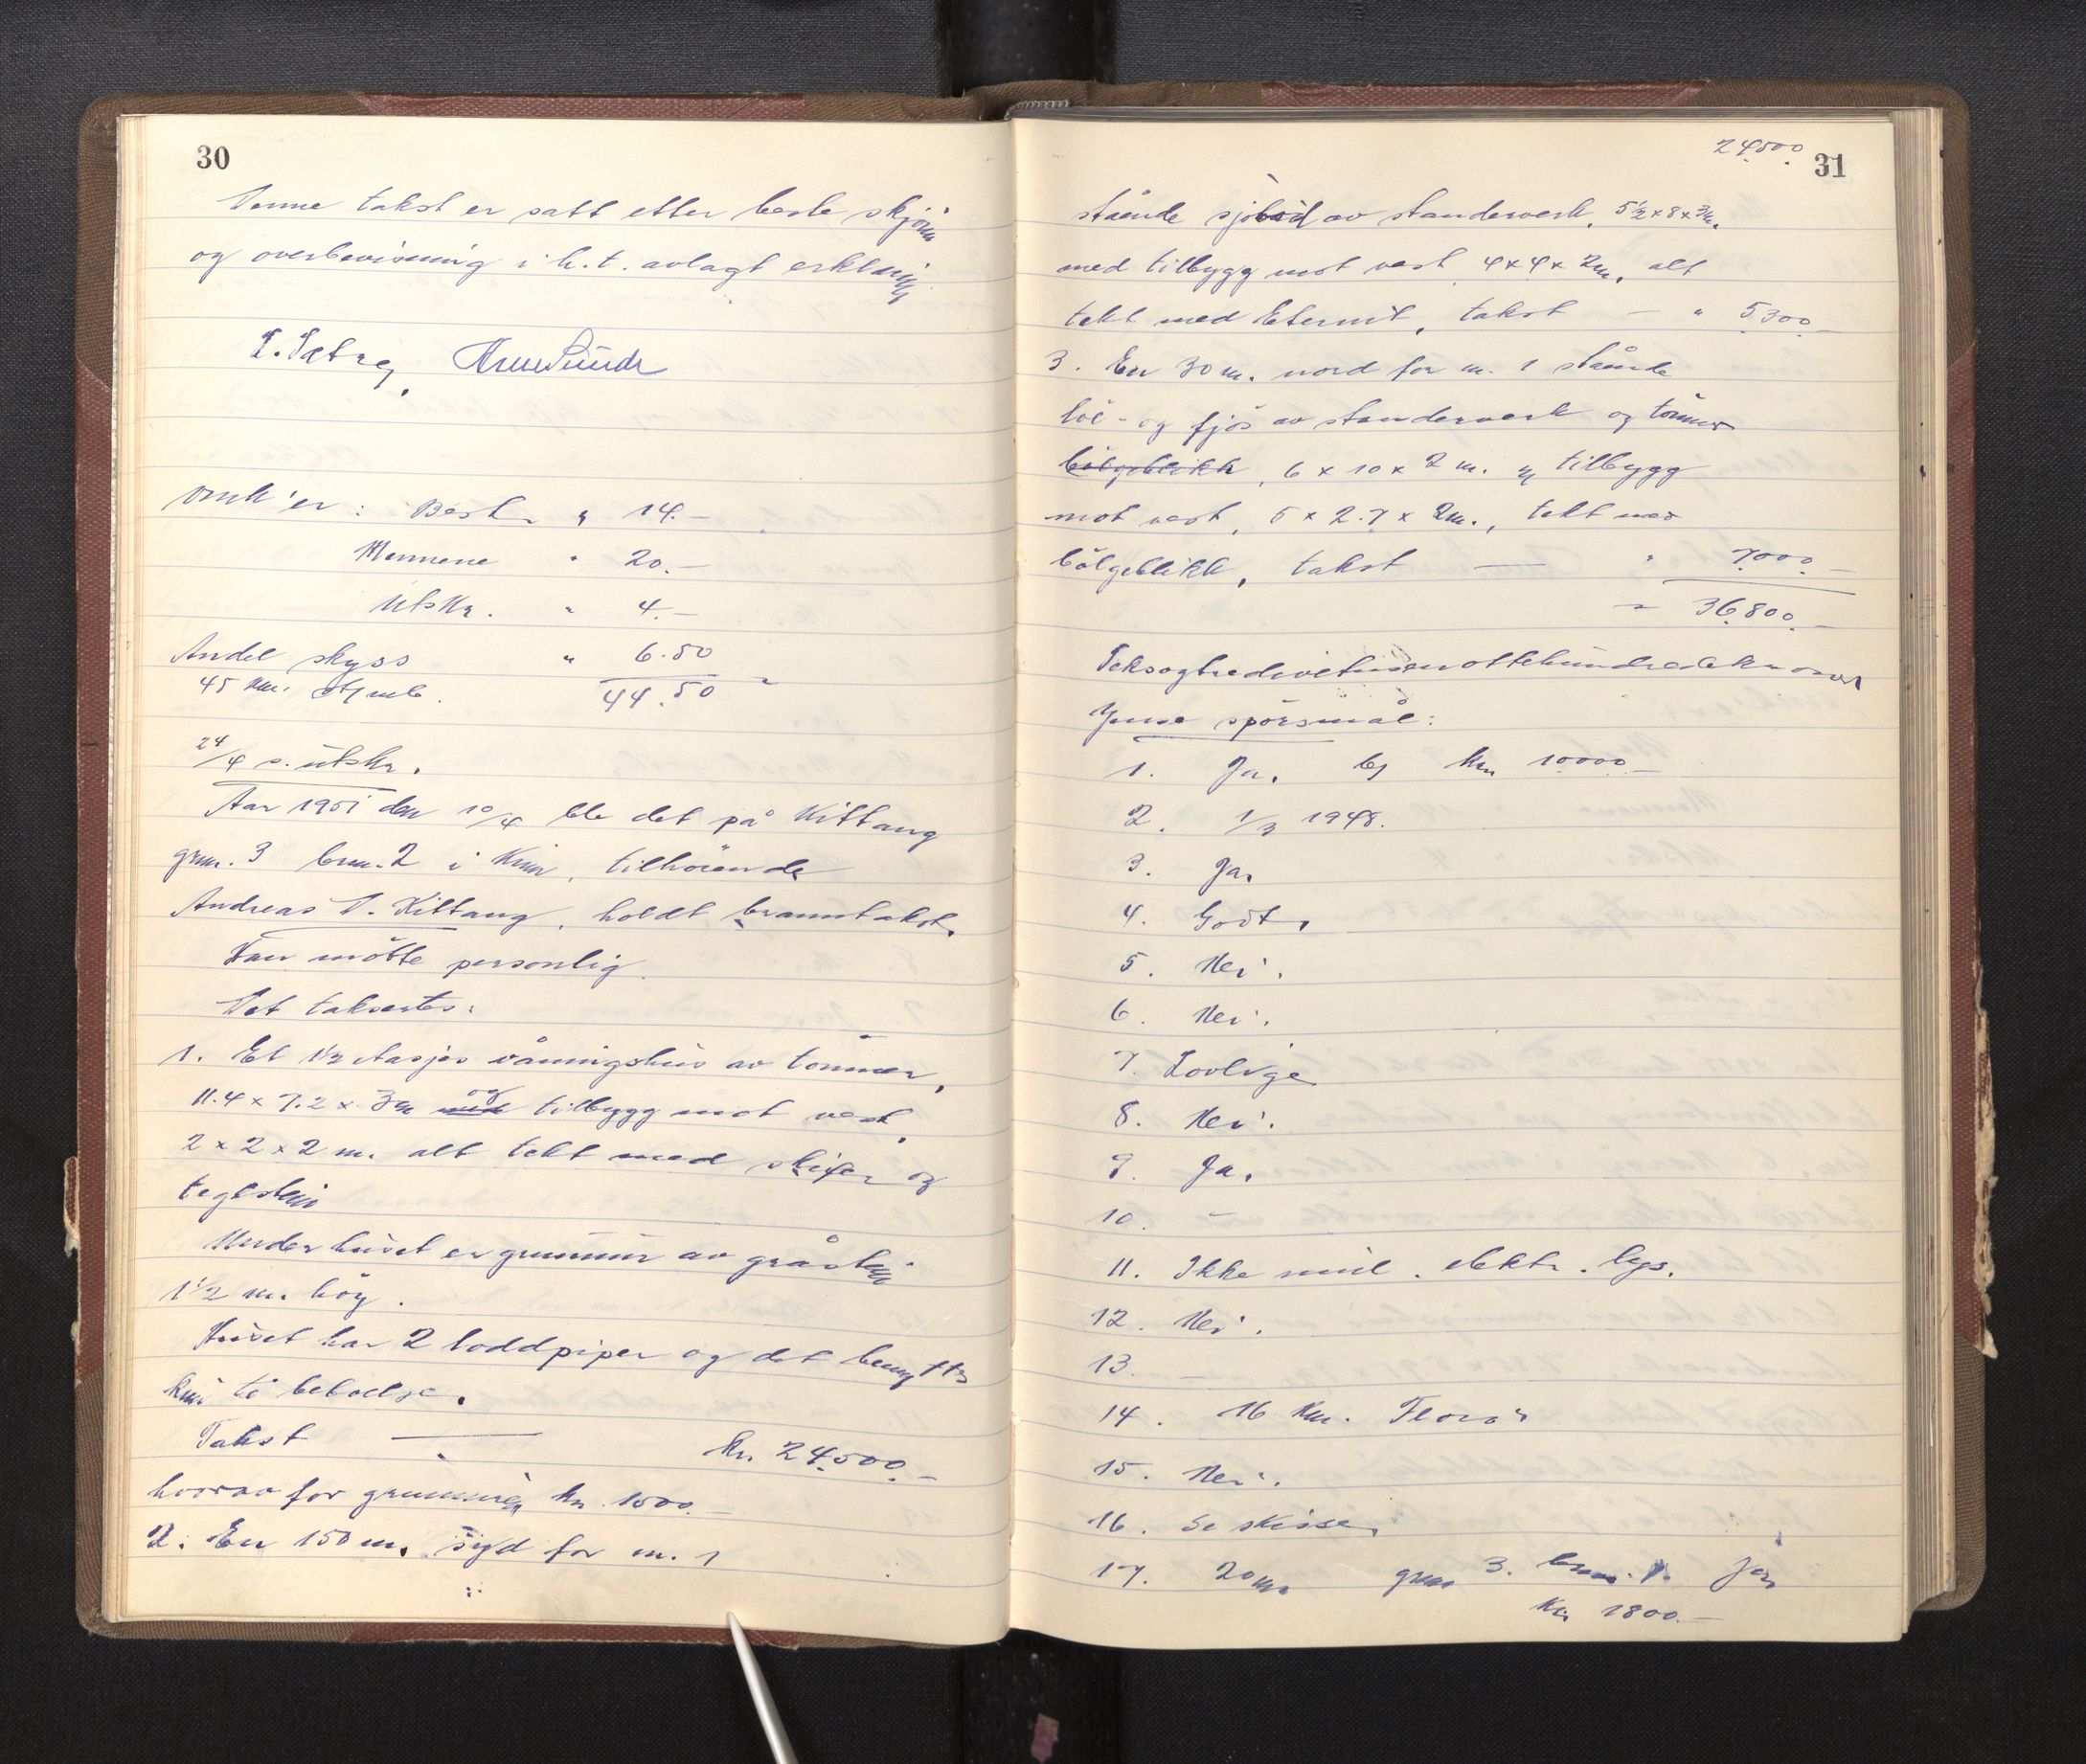 30
Denne takst er satt etter beste skjønn
og overbevisning i h.t. avlagt erklæring
omk'er: Best. " 14.-
Mennene " 20.-
Utskr. " 4.-
Andel skyss " 6.50
45 km. 44.50
24/4 s. utskr.
Aar 1951 den 10/4 ble det på Kittang
gnr. 3 bnr. 2 i Kinn, tilhörende
Andreas D. Kittang, holdt branntakst.
Han mötte personlig.
Det taksertes:
1. Et 1½ etasjes våningshus av tömmer,
11.4 x 7.2 x 3 m og tilbygg mot vest,
2 x 2 x 2 m. alt tekt med skifer og
teglstein
Under huset er grunnmur av gråstein
1½ m. höy.
Huset har 2 loddpiper og det benyttes
kun til beboelse.
Takst — kr. 24.500.-
hvorav for grunnmuren kr. 1500.-
2. En 150 m. syd for nr. 1
24.500. 31
stående sjöbod av standerverk, 5½ x 8 x 3 m.
med tilbygg mot vest 4 x 4 x 2 m. alt
tekt med Eternit, takst — " 5300.-
3. En 30 m. nord for nr. 1 stående
löe- og fjös av standerverk og tömmer
bölgeblikk, 6 x 10 x 2 m. m tilbygg
mot vest, 5 x 2.7 x 2 m., tekt med
bölgeblikk, takst — " 7000.-
= 36.800.-
Seksogtredivetusenottehundredekroner
Ymse spörsmål:
1. Ja. Bf kr. 10000.-
2. 1/3 1948.
3. Ja.
4. Godt.
5. Nei.
6. Nei.
7. Lovlige
8. Nei.
9. Ja.
10. -
11. Ikke innl. elektr. lys.
12. Nei.
13. -
14. 16 km. Florö
15. Nei.
16. Se skisse.
17. 20 m. gnr 3. bnr. 1. Jen
kr 1800.-